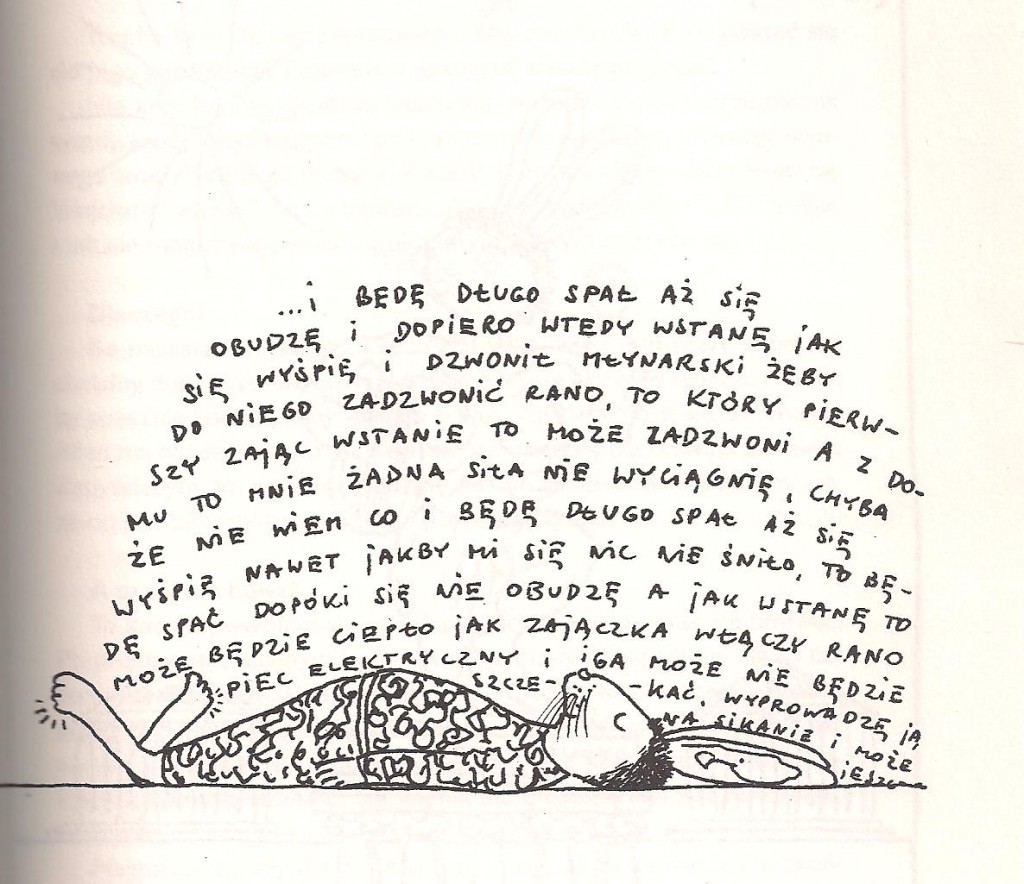 ...i BĘDĘ DŁUGO SPAŁ AŻ SIĘ
OBUDZĘ i DOPIERO WTEDY WSTANĘ jAK
SIĘ WYŚPIĘ i DZWONIŁ MŁYNARSKI ŻEBY
DO NiEGO ZADZWONIĆ RANO, TO KTÓRY PiERW-
SZY ZAjĄC WSTANIE TO MOŻE ZADZWONi A Z DO-
MU TO MNIE ŻADNA SiŁA NIE WYCiĄGNIĘ, CHYBA
ŻE NIE WIEM CO i BĘDĘ DŁUGO SPAŁ AŻ SIĘ
WYŚPIĘ NAWET jAKBY Mi SIĘ NIC NIE ŚNiŁO, TO BĘ-
DĘ SPAĆ DOPÓKi SIĘ NIE OBUDZĘ A jAK WSTANĘ TO
MOŻE BĘDZIE CiEPŁO jAK ZAjĄCZKA WŁĄCZY RANO
PiEC ELEKTRYCZNY i iGA MOŻE NIE BĘDZIE
SZCZE- -KAĆ, WYPROWADZĘ jĄ
NA SIKANIE i MOŻE
jESZCZ